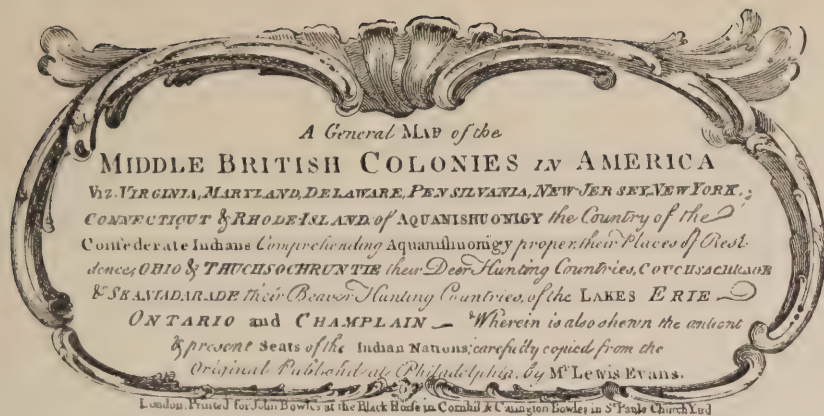 A General MAP of the
MIDDLE BRITISH COLONIES IN AMERICA
VIZ. VIRGINIA, MARYLAND, DELAWARE, PENSILVANIA, NEW-JERSEY, NEW YORK,
CONNECTICUT & RHODE-ISLAND, of AQUANISHUONIGY the Country of the
Confederate Indians Comprehending Aquanishuonigy proper, their Places of Resi-
dence, OHIO & THUCHSOCHRUNTIE their Deer Hunting Countries, COUCHSACHRAGE
& SKANIADARADE their Beaver Hunting Countries, of the LAKES ERIE
ONTARIO and CHAMPLAIN Wherein is also shewn the antient
& present Seats of the Indian Nations; carefully copied from the
Original Publish'd at Philadelphia, by Mr. Lewis Evans.
London, Printed for John Bowles at the Black Horse in Cornhil & Carington Bowles in St. Pauls Church Yard